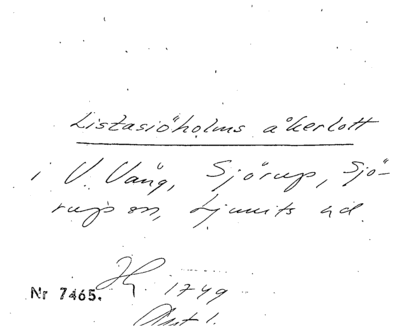 Listasiöholms åkerlott
i V. Vång, Sjörup, Sjö-
rups sn, Ljunits hd.
1749
Nr 7465.
Akt 1.